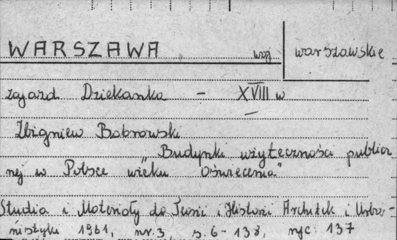 WARSZAWA woj. warszawskie
zajazd Dziekanka - XVIII w
Zbigniew Bobrowski
"Budynki użyteczności publicz-
nej w Polsce wieku Oświecenia"
Studia i Materiały do Teorii i Historii Architek. i Urba-
nistyki 1961, nr. 3 s. 6 - 138, ryc. 137